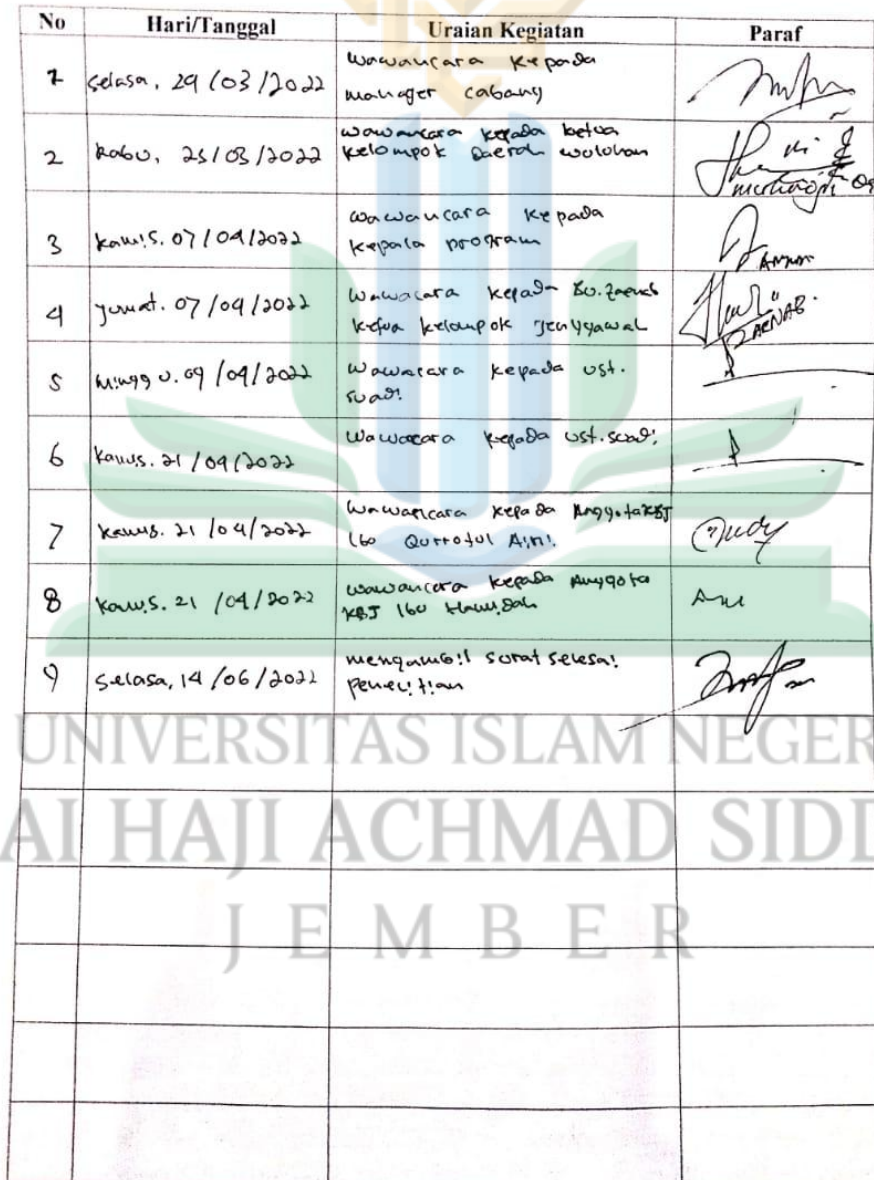 No Hari/Tanggal Uraian Kegiatan Paraf
1 Selasa, 29/03/2022 Wawancara kepada
manager cabang
2 Rabu, 25/03/2022 wawancara kepada ketua
kelompok daerah wuluhan
3 Kamis. 07/04/2022 Wawancara kepada
kepala program
4 Jumat. 07/04/2022 Wawacara kepada Bu. Zaenab
ketua kelompok Jenggawah
ZAENAB.
5 Minggu. 09/04/2022 Wawacara kepada ust.
suadi
6 Kamis. 21/04/2022 Wawacara kepada ust. suadi
7 Kamis. 21/04/2022 Wawancara kepada Anggota KBJ
Ibu Qurrotul Aini
8 Kamis. 21/04/2022 wawancara kepada Anggota
KBJ Ibu Hamidah
9 Selasa, 14/06/2022 mengambil surat selesai
penelitian
UNIVERSITAS ISLAM NEGER
AI HAJI ACHMAD SIDD
JEMBER